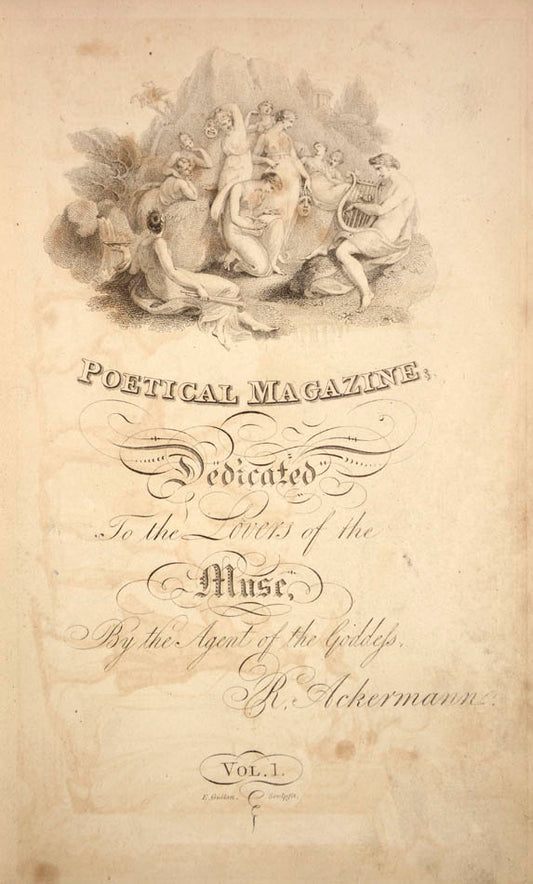 POETICAL MAGAZINE;
Dedicated
To the Lovers of the
Muse,
By the Agent of the Goddeſs.
R. Ackermann.
VOL. 1.
Sculpſit.